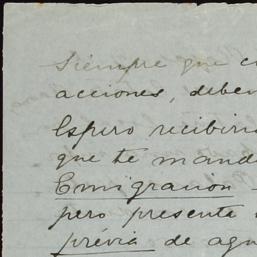 Siempre que c
acciones, deben
Espero recibir
que te mand
Emigración
pero presente
prévia de agu